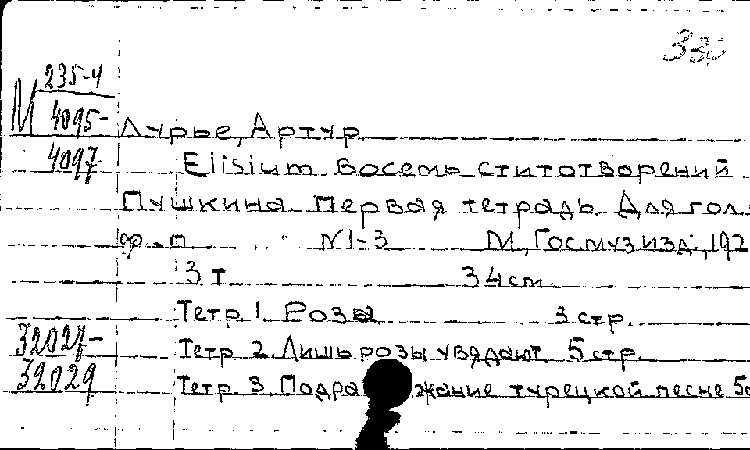 235-4
М 4095-
4097
Лурье, Артур
Elisium восемь ститотворений
Пушкина. Первая тетрадь. Для гол.
ф-п №1-3 М, Госмузизд., 192
3 т 34 cm
Тетр. 1. Розы 3 стр.
32027- Тетр. 2. Лишь розы увядают. 5 стр.
32029 Тетр. 3. Подражание турецкой песне 5